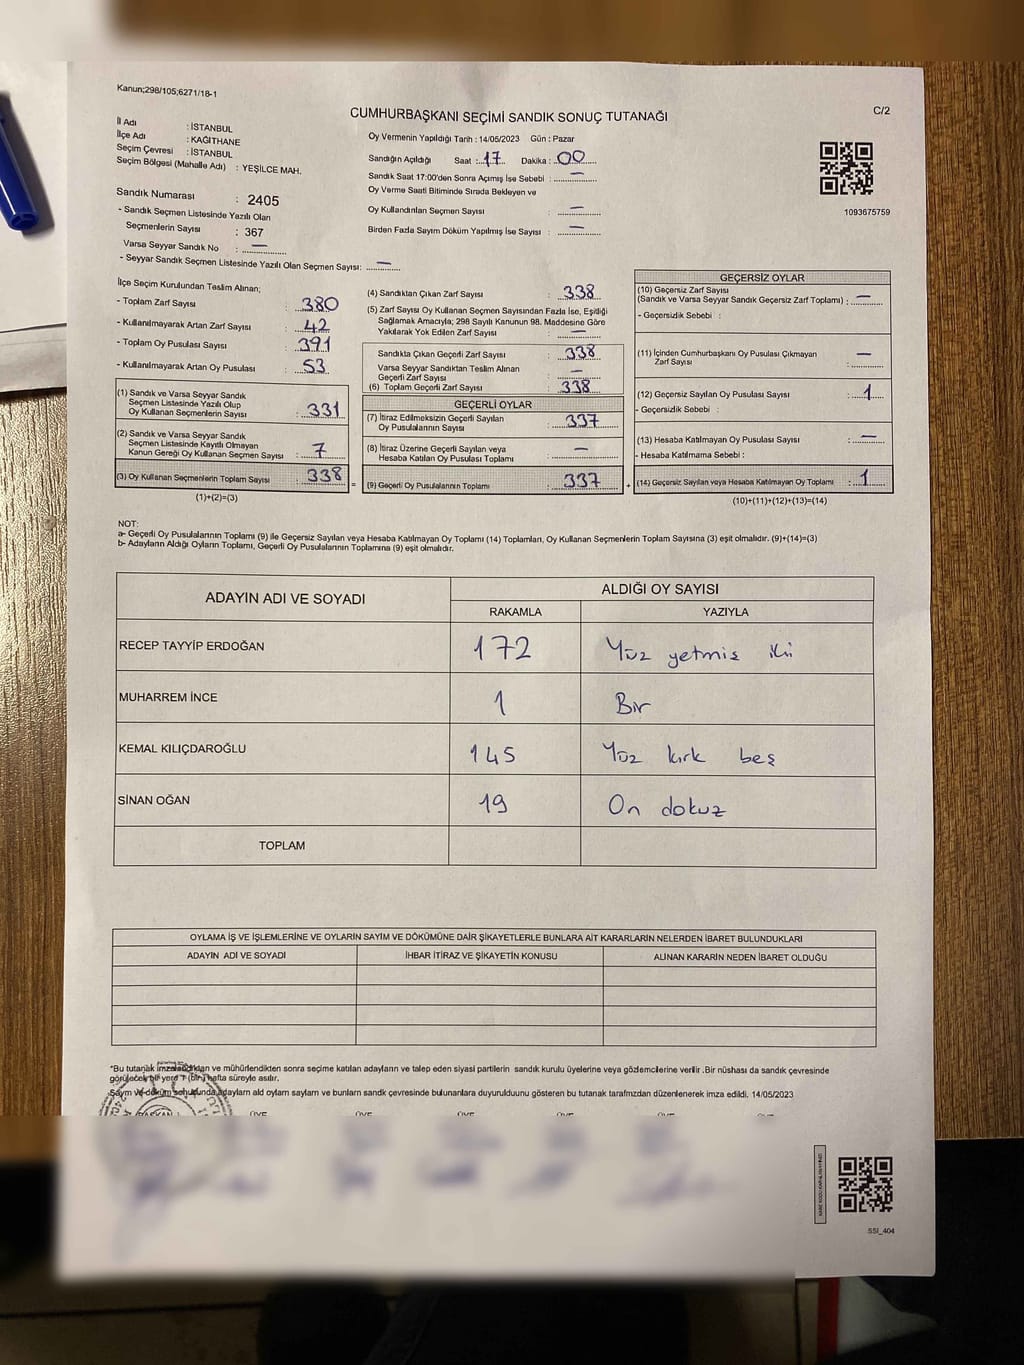 Kanun;298/105;6271/18-1
C/2
CUMHURBAŞKANI SEÇİMİ SANDIK SONUÇ TUTANAĞI
İl Adı : İSTANBUL
İlçe Adı : KAĞITHANE
Seçim Çevresi : İSTANBUL
Seçim Bölgesi (Mahalle Adı) : YEŞİLCE MAH.
Sandık Numarası : 2405
- Sandık Seçmen Listesinde Yazılı Olan
Seçmenlerin Sayısı : 367
Varsa Seyyar Sandık No : —
- Seyyar Sandık Seçmen Listesinde Yazılı Olan Seçmen Sayısı: —
Oy Vermenin Yapıldığı Tarih : 14/05/2023 Gün : Pazar
Sandığın Açıldığı Saat : 17 Dakika : 00
Sandık Saat 17:00'den Sonra Açımış İse Sebebi : —
Oy Verme Saati Bitiminde Sırada Bekleyen ve
Oy Kullandırılan Seçmen Sayısı : —
Birden Fazla Sayım Döküm Yapılmış İse Sayısı : —
1093675759
İlçe Seçim Kurulundan Teslim Alınan;
- Toplam Zarf Sayısı : 380
- Kullanılmayarak Artan Zarf Sayısı : 42
- Toplam Oy Pusulası Sayısı : 391
- Kullanılmayarak Artan Oy Pusulası : 53
(1) Sandık ve Varsa Seyyar Sandık
Seçmen Listesinde Yazılı Olup
Oy Kullanan Seçmenlerin Sayısı : 331
(2) Sandık ve Varsa Seyyar Sandık
Seçmen Listesinde Kayıtlı Olmayan
Kanun Gereği Oy Kullanan Seçmen Sayısı : 7
(3) Oy Kullanan Seçmenlerin Toplam Sayısı : 338
(1)+(2)=(3)
(4) Sandıktan Çıkan Zarf Sayısı : 338
(5) Zarf Sayısı Oy Kullanan Seçmen Sayısından Fazla İse, Eşitliği
Sağlamak Amacıyla; 298 Sayılı Kanunun 98. Maddesine Göre
Yakılarak Yok Edilen Zarf Sayısı : —
Sandıkta Çıkan Geçerli Zarf Sayısı : 338
Varsa Seyyar Sandıktan Teslim Alınan
Geçerli Zarf Sayısı : —
(6) Toplam Geçerli Zarf Sayısı : 338
GEÇERLİ OYLAR
(7) İtiraz Edilmeksizin Geçerli Sayılan
Oy Pusulalarının Sayısı : 337
(8) İtiraz Üzerine Geçerli Sayılan veya
Hesaba Katılan Oy Pusulası Toplamı : —
= (9) Geçerli Oy Pusulalarının Toplamı : 337 +
GEÇERSİZ OYLAR
(10) Geçersiz Zarf Sayısı
(Sandık ve Varsa Seyyar Sandık Geçersiz Zarf Toplamı) : —
- Geçersizlik Sebebi :
(11) İçinden Cumhurbaşkanı Oy Pusulası Çıkmayan
Zarf Sayısı : —
(12) Geçersiz Sayılan Oy Pusulası Sayısı : 1
- Geçersizlik Sebebi :
(13) Hesaba Katılmayan Oy Pusulası Sayısı : —
- Hesaba Katılmama Sebebi :
(14) Geçersiz Sayılan veya Hesaba Katılmayan Oy Toplamı : 1
(10)+(11)+(12)+(13)=(14)
NOT:
a- Geçerli Oy Pusulalarının Toplamı (9) ile Geçersiz Sayılan veya Hesaba Katılmayan Oy Toplamı (14) Toplamları, Oy Kullanan Seçmenlerin Toplam Sayısına (3) eşit olmalıdır. (9)+(14)=(3)
b- Adayların Aldığı Oyların Toplamı, Geçerli Oy Pusulalarının Toplamına (9) eşit olmalıdır.
ADAYIN ADI VE SOYADI ALDIĞI OY SAYISI
RAKAMLA YAZIYLA
RECEP TAYYİP ERDOĞAN 172 Yüz yetmiş iki
MUHARREM İNCE 1 Bir
KEMAL KILIÇDAROĞLU 145 Yüz kırk beş
SİNAN OĞAN 19 On dokuz
TOPLAM
OYLAMA İŞ VE İŞLEMLERİNE VE OYLARIN SAYIM VE DÖKÜMÜNE DAİR ŞİKAYETLERLE BUNLARA AİT KARARLARIN NELERDEN İBARET BULUNDUKLARI
ADAYIN ADI VE SOYADI İHBAR İTİRAZ VE ŞİKAYETİN KONUSU ALINAN KARARIN NEDEN İBARET OLDUĞU
"Bu tutanak imzalandıktan ve mühürlendikten sonra seçime katılan adayların ve talep eden siyasi partilerin sandık kurulu üyelerine veya gözlemcilerine verilir .Bir nüshası da sandık çevresinde
görülecek bir yere 1 (bir) hafta süreyle asılır.
Sayım ve döküm sonunda adayların ald oyların sayları ve bunların sandk çevresinde bulunanlara duyurulduunu gösteren bu tutanak tarafmzdan düzenlenerek imza edildi. 14/05/2023
BAŞKAN ÜYE ÜYE ÜYE ÜYE ÜYE
SSI_404